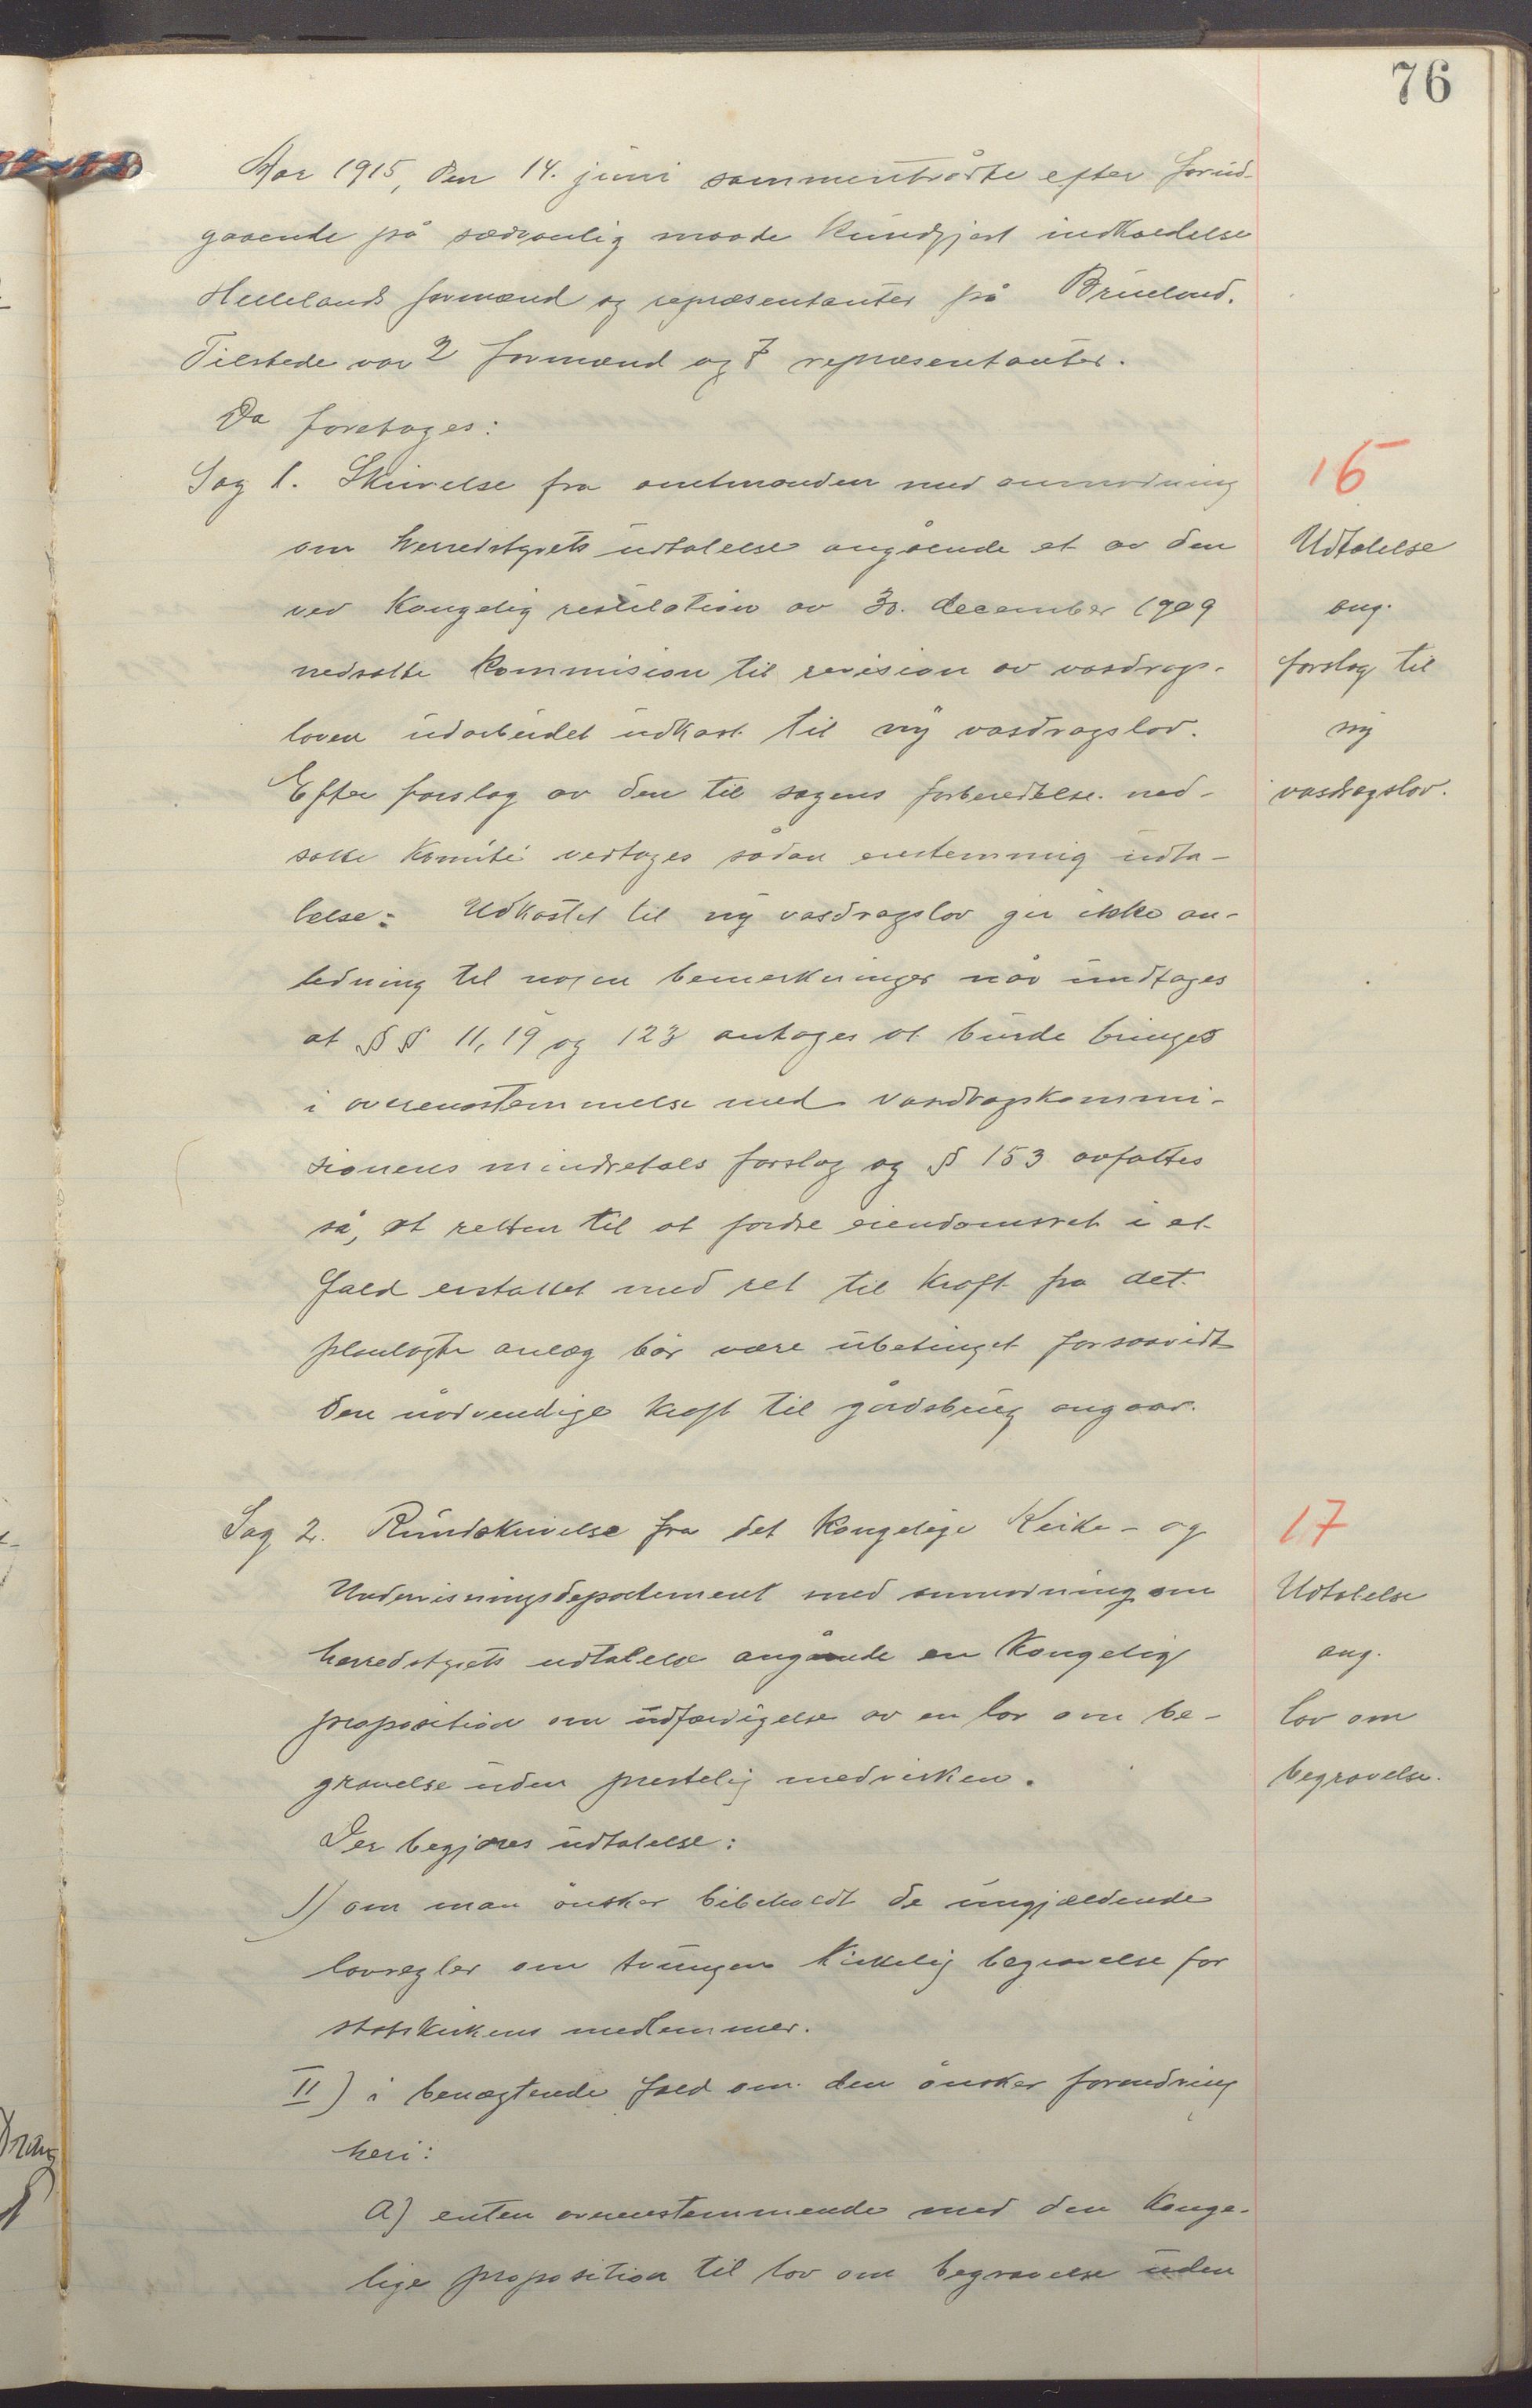 76
Aar 1915, den 14. juni sammentrådte efter forud-
gaaende på sædvanlig maade kundgjort indkaldelse
Hellelands formænd og repræsentanter på Brueland.
Tilstede var 2 formænd og 7 repræsentanter.
Da foretages:
Sag 1. Skrivelse fra amtmanden med anmodning
om herredstyrets udtalelse angående et av den
ved kongelig resolution av 30. december 1909
nedsatte kommision til revision av vasdrags-
loven udarbeidet udkast til ny vasdragslov.
Efter forslag av den til sagens forberedelse ned-
satte komité vedtages sådan enstemmig udta-
lelse: Udkastet til ny vasdragslov gir ikke an-
ledning til nogen bemerkninger når undtages
at §§ 11, 19 og 123 antages at burde bringes
i overensstemmelse med vasdragskommi-
sionens mindretals forslag og § 153 avfattes
så, at retten til at fordre eiendomsret i et
fald erstattet med ret til kraft fra det
planlagte anlæg bør være ubetinget forsaavidt
den nødvendige kraft til gårdsbrug angaar.
16
Udtalelse
ang.
forslag til
ny
vasdragslov.
Sag 2. Rundskrivelse fra det kongelige Kirke- og
Undervisningsdepartement med anmodning om
herredstyrets udtalelse angående en kongelig
proposition om udfærdigelse av en lov om be-
gravelse uden prestelig medvirken.
Der begjæres udtalelse:
I) om man ønsker bibeholdt de nugjældende
lovregler om tvungen kirkelig begravelse for
statskirkens medlemmer.
II) i benægtende fald om den ønsker forandring
heri:
A) enten overensstemmende med den konge-
lige proposition til lov om begravelse uden
17
Udtalelse
ang.
lov om
begravelse.